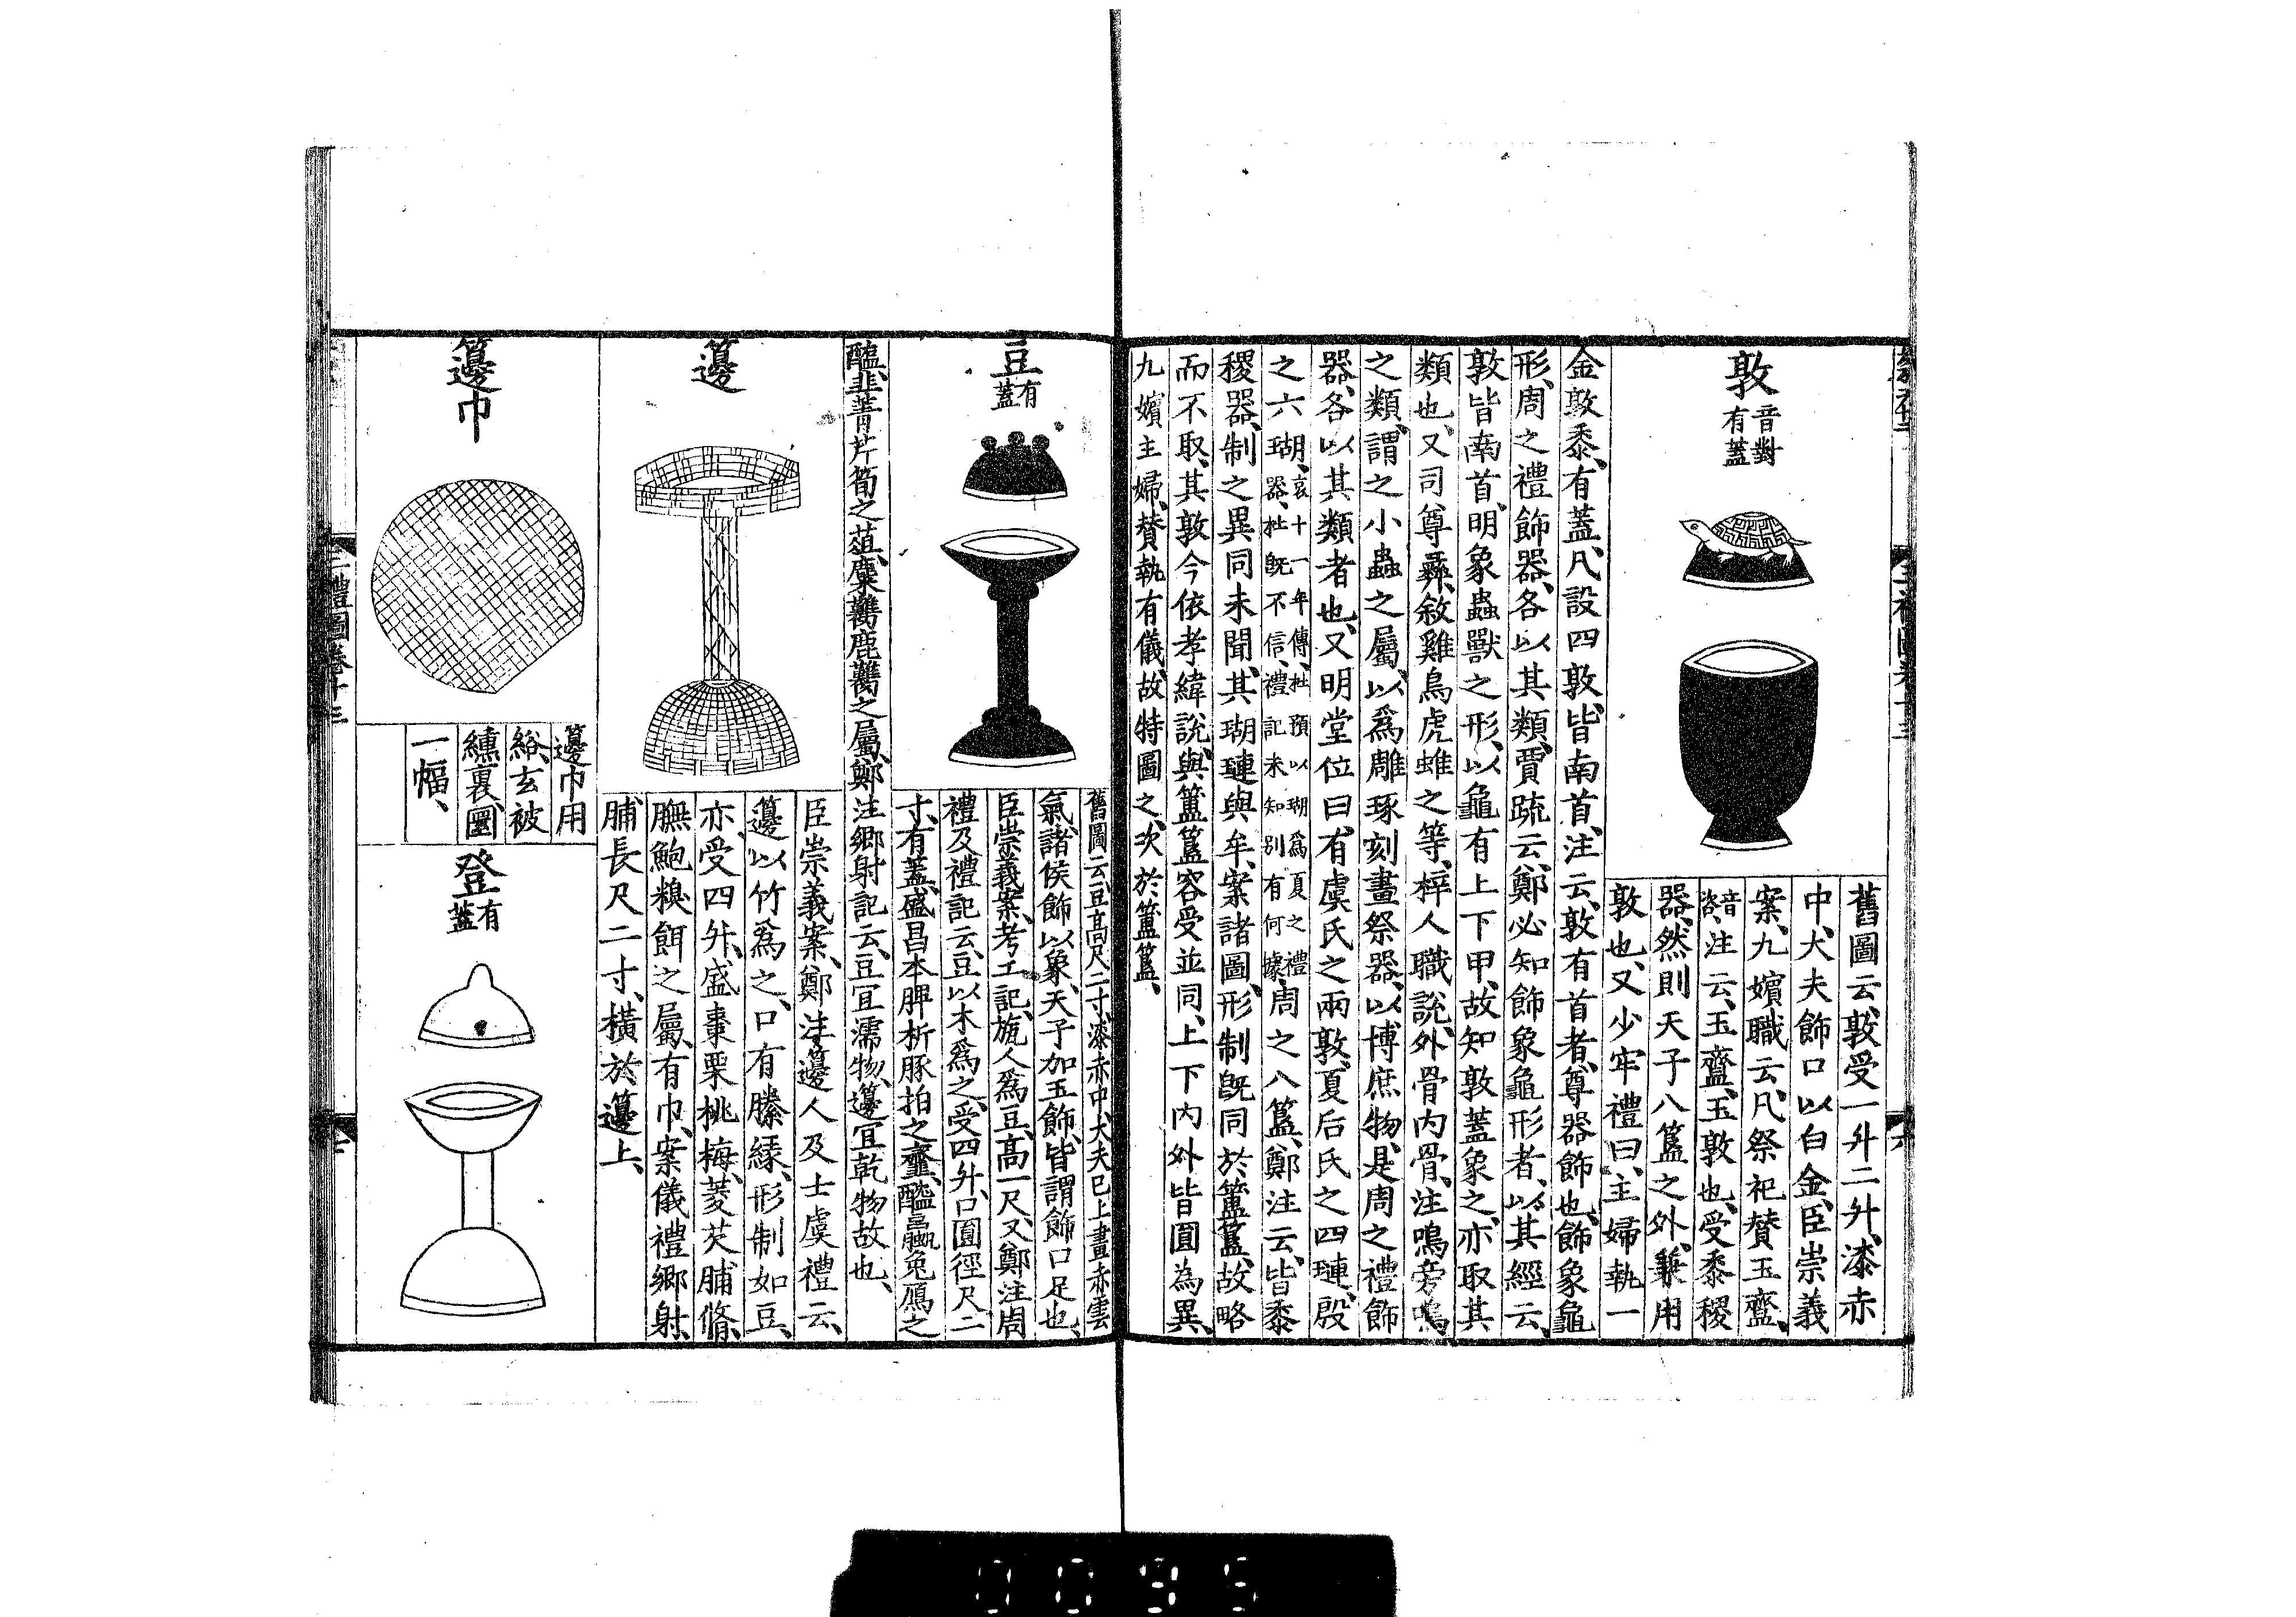 敦
音對
有蓋
舊圖云、敦受一斗二升、漆赤
中、大夫飾口以白金、臣崇義
案、九嬪職云、凡祭祀贊玉齍、
音
咨、注云、玉齍、玉敦也、受黍稷
器、然則天子八簋之外、兼用
敦也、又少牢禮曰、主婦執一
金敦黍、有蓋、凡設四敦、皆南首、注云、敦有首者、尊器飾也、飾象龜
形、周之禮飾器、各以其類、賈疏云、鄭必知飾象龜形者、以其經云、
敦皆南首、明象蟲獸之形、以龜有上下甲、故知敦蓋象之、亦取其
類也、又司尊彝、敘雞鳥虎蜼之等、梓人職說、外骨内骨、注鳴旁鳴
之類、謂之小蟲之屬、以爲雕琢刻畫祭器、以博庶物、是周之禮飾
器、各以其類者也、又明堂位曰、有虞氏之兩敦、夏后氏之四璉、殷
之六瑚、哀十一年傳、杜預以瑚爲夏之禮
器、杜旣不信、禮記未知別有何據、周之八簋、鄭注云、皆黍
稷器、制之異同未聞、其瑚璉與牟、案諸圖、形制旣同於簠簋、故略
而不取、其敦今依孝緯說、與簠簋容受並同、上下内外皆圓為異、
九嬪主婦、贊執有儀、故特圖之、次於簠簋、
豆
有
蓋
舊圖云、豆高尺二寸、漆赤中、大夫已上畫赤雲
氣、諸侯飾以象、天子加玉飾、皆謂飾口足也、
臣崇義案、考工記、旊人爲豆、高一尺、又鄭注周
禮及禮記云、豆以木爲之、受四升、口圓徑尺二
寸、有蓋、盛昌本脾析豚拍之齏、醢蠃兔鴈之
醢、韭菁芹筍之菹、麋臡鹿臡之屬、鄭注鄉射記云、豆宜濡物、籩宜乾物故也、
籩
臣崇義案、鄭注籩人及士虞禮云、
籩以竹爲之、口有縢緣、形制如豆、
亦受四升、盛棗栗桃梅、菱芡脯脩、
膴鮑糗餌之屬、有巾、案儀禮鄉射、
脯長尺二寸、橫於籩上、
籩巾
籩巾用
綌、玄被
纁裏、圜
一幅、
登
有
蓋
三禮圖卷十三